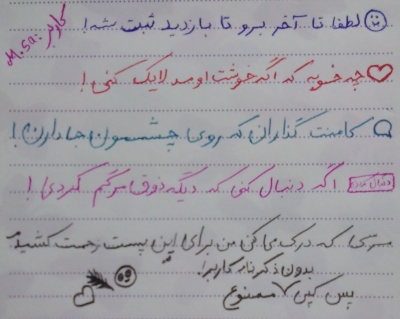 کاربر: M.Sa
لطفا تا آخر برو تا بازدید ثبت شه!
چه خوبه که اگه خوشت اومد لایک کنی!
کامنت گذاران که روی چشممون جا دارن!
دنبال کردن اگه دنبال کنی که دیگه ذوق مرگم کردی!
مرسی که درک می کنی من برای این پست زحمت کشیدم
بدون ذکر نام کاربر!
پس کپی ممنوع